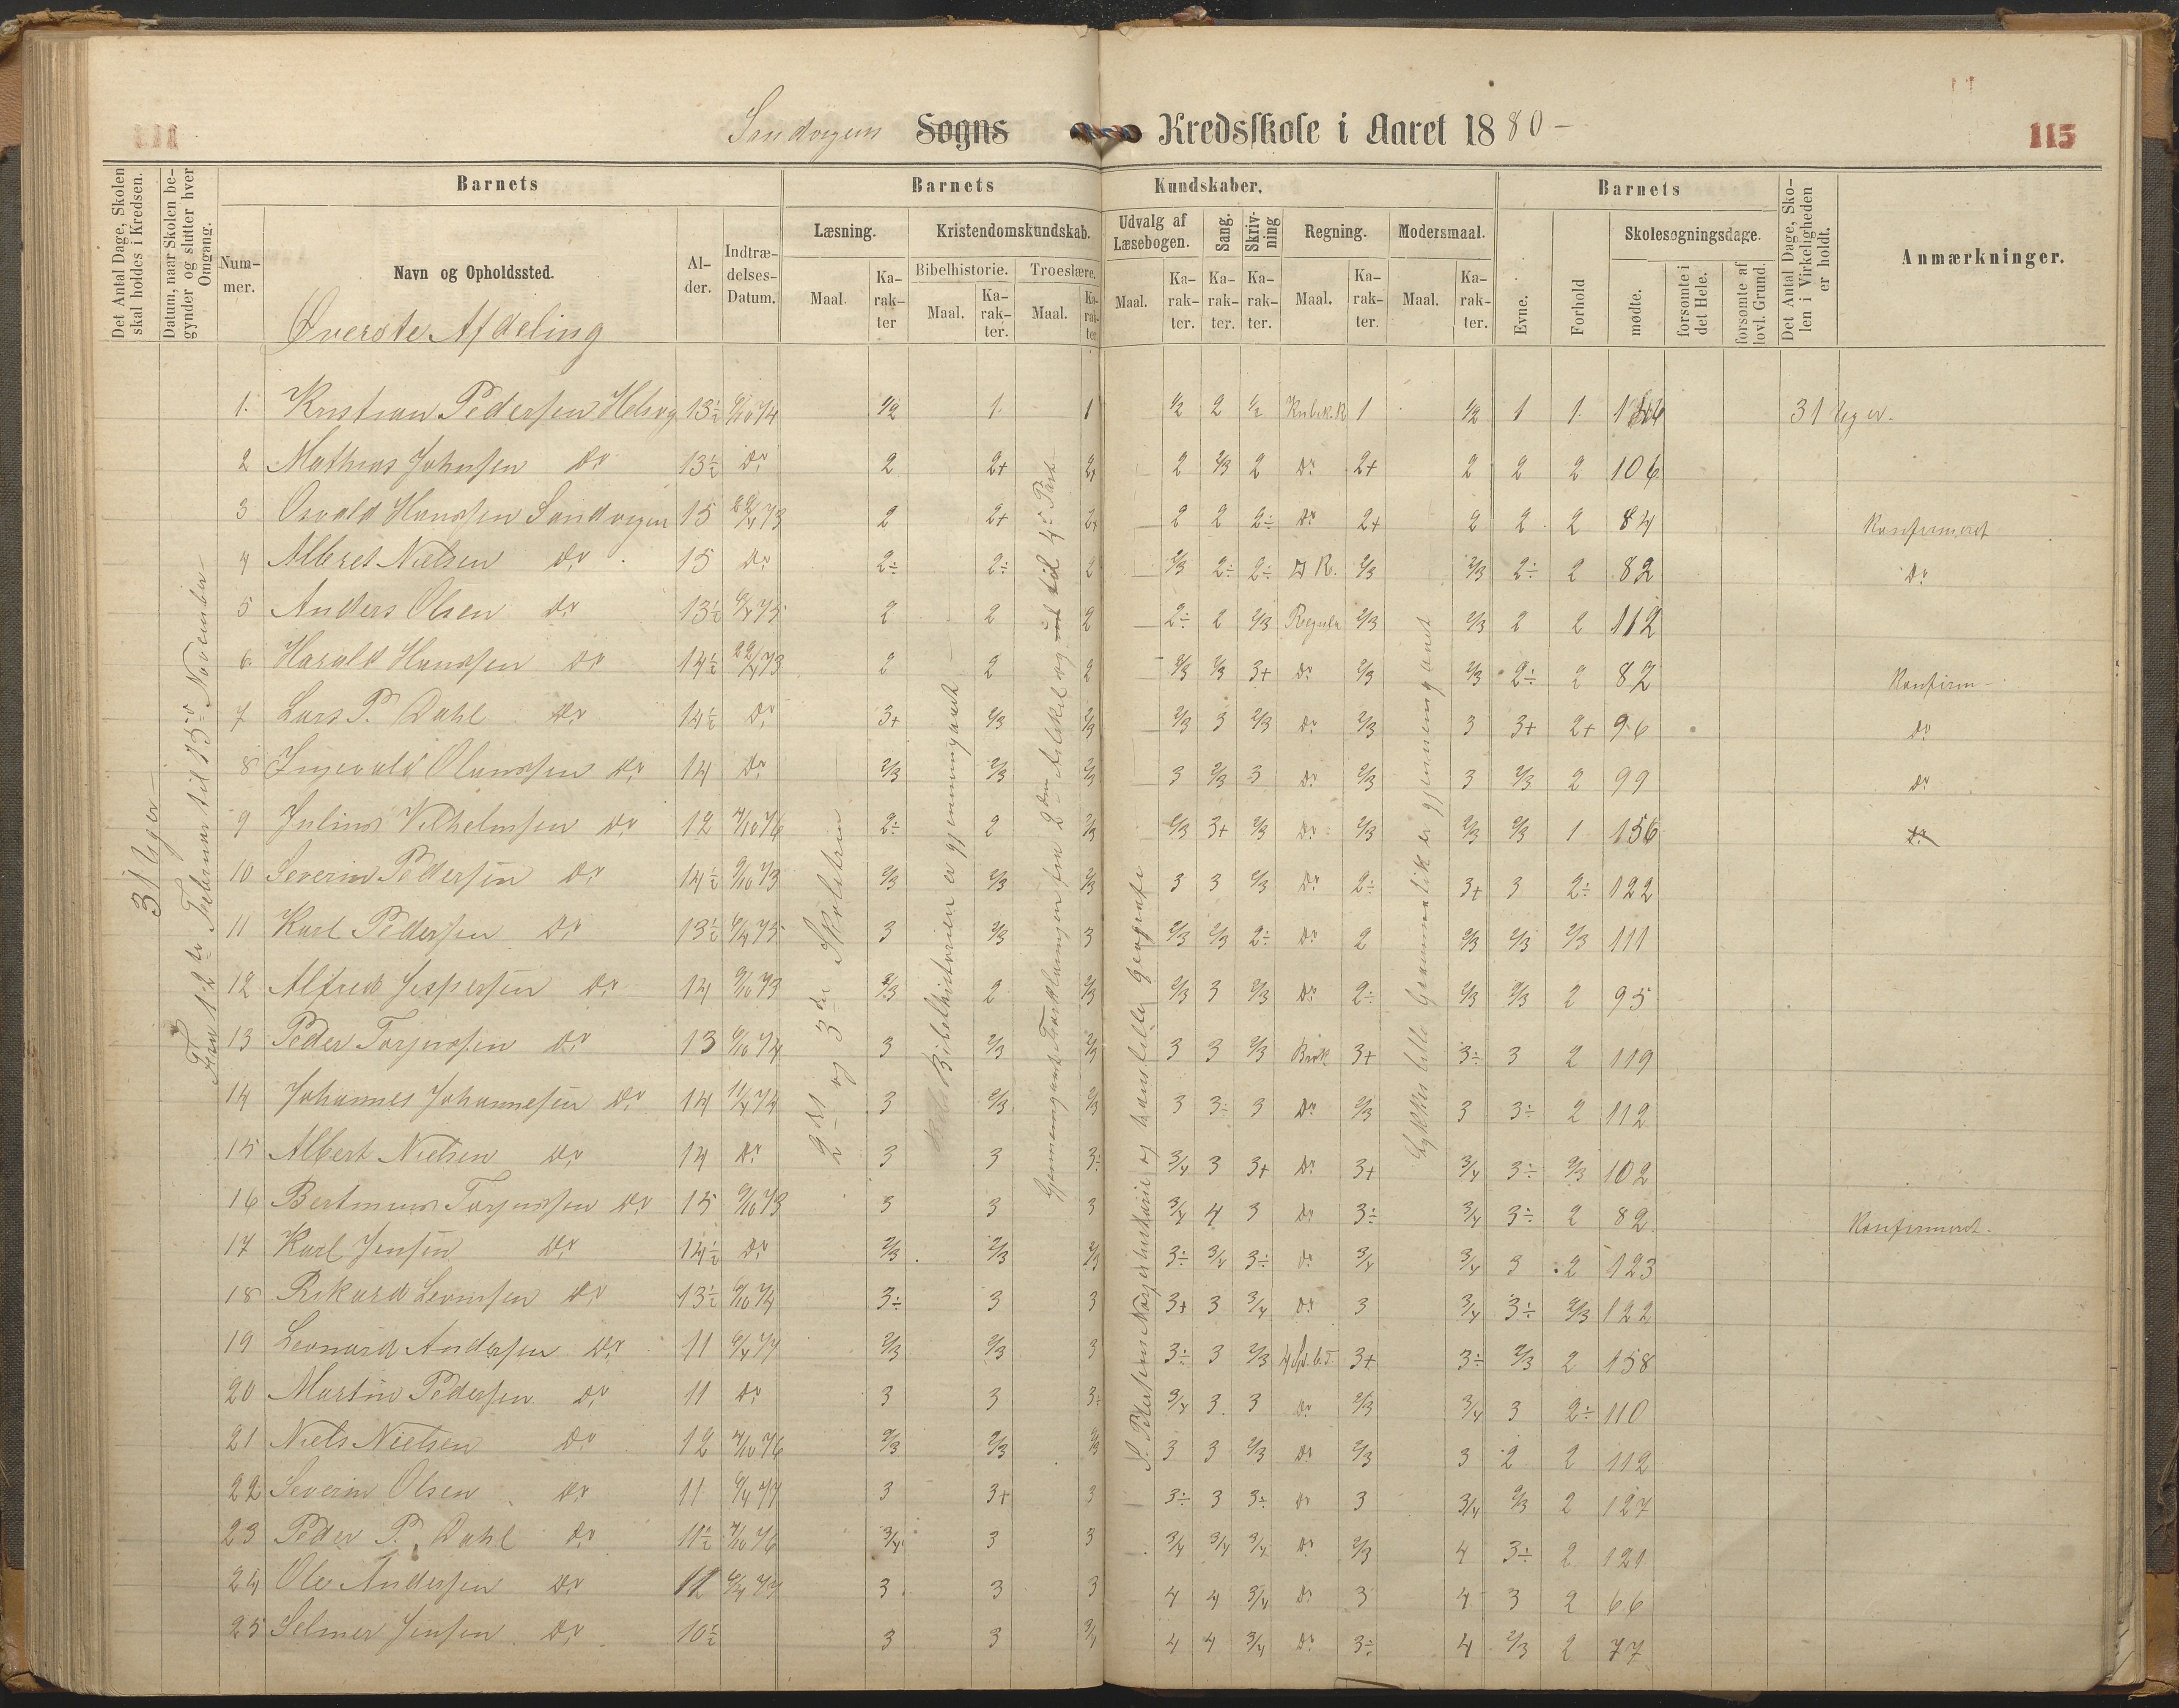 Sandvigens Sogns Kredsskole i Aaret 1880 –
115
Det Antal Dage, Skolen skal holdes i Kredsen.
Datum, naar Skolen begynder og slutter hver Omgang.
Barnets
Nummer.
Navn og Opholdssted.
Alder.
Indtrædelses-Datum.
Barnets Kundskaber.
Læsning.
Maal.
Karakter
Kristendomskundskab.
Bibelhistorie.
Maal.
Karakter.
Troeslære.
Maal.
Karakter
Udvalg af Læsebogen.
Maal.
Karakter.
Sang.
Karakter.
Skrivning
Karakter.
Regning.
Maal.
Karakter.
Modersmaal.
Maal.
Karakter.
Barnets
Evne.
Forhold
Skolesøgningsdage.
mødte.
forsømte i det Hele.
forsømte af lovl. Grund.
Det Antal Dage, Skolen i Virkeligheden er holdt.
Anmærkninger.
Øverste Afdeling
31 Uger –
Fra 12te Februar til 15de November –
2den og 3die Skoletrin
Bibelhistorien er gjennemgaaet
S. Petersens Norgeshistorie og hans lille Geografi
Løkkes lille Grammatik er gjennemgaaet
1. Kristian Pedersen 13½ 6/10 74 1/2 1 1 1/2 2 1/2 Kubik.R 1 1/2 1 1 31 Uger.
2 Mathias Johnsen do 13½ do 2 2+ 2+ 2 2/3 2 do 2+ 2 2 2 106
3 Osvald Hanssen Sandvigen 15 22/4 73 2 2+ 2+ 2 2 2÷ do 2+ 2 2 2 84 Konfirmeret
4 Albret Nielsen do 15 do 2÷ 2÷ 2 2/3 2÷ 2÷ 2/3 2/3 2÷ 2 82 do
5 Anders Olsen do 13½ 6/4 75 2 2 2 2÷ 2 2/3 2/3 2/3 2 2 112
6 Harald Hanssen do 14½ 22/4 73 2 2 2 2/3 2/3 3+ do 2/3 2/3 2÷ 2 82 Konfirm –
7 Lars P. Dahl do 14½ do 3+ 2/3 2/3 2/3 3 2/3 do 2/3 3 3+ 2+ 96 do
8 Ingevald Olaussen do 14 do 2/3 2/3 2/3 3 2/3 3 do 2/3 3 2/3 2 99 do
9 Julius Vilhelmsen do 12 4/10 76 2÷ 2 2/3 2/3 3+ 2/3 do 2/3 2/3 2/3 1 156 do
10 Severin Pedersen do 14½ 9/10 73 2/3 2/3 2/3 3 3 2/3 do 2÷ 3+ 3 2÷ 122
11 Karl Pedersen do 13½ 6/4 75 3 2/3 3 2/3 2/3 2÷ do 2 2/3 2/3 2/3 111
12 Alfred Jespersen do 14 9/10 73 2/3 2 2/3 2/3 3 2/3 do 2÷ 2/3 2/3 2 95
13 Peder Torjussen do 13 6/10 74 3 2/3 2/3 3 3 2/3 Brøk 3+ 3÷ 3 2 119
14 Johannes Johannesen do 14 11/4 74 3 2/3 2/3 3 3÷ 3 do 2/3 3 3÷ 2 112
15 Albert Nielsen do 14 do 3 3 3÷ 3/4 3 3+ do 3+ 3/4 3÷ 2/3 102
16 Bertinius Torjussen do 15 9/10 73 3 3 3 3/4 4 3 do 3÷ 3/4 3÷ 2 82 Konfirmeret.
17 Karl Jensen do 14½ do 2/3 2/3 2/3 3÷ 3/4 3÷ do 3/4 3/4 3 2 123
18 Rikard Levinsen do 13½ 6/10 74 3÷ 3 3 3+ 3 3/4 do 3 3/4 3÷ 2/3 122
19 Leonard Andersen do 11 6/4 77 2/3 2/3 3 3÷ 3 2/3 3+ 3÷ 2/3 2 158
20 Martin Pedersen do 11 do 3 3 3÷ 3/4 3 3 do 2/3 3/4 3 2÷ 110
21 Niels Nielsen do 12 4/10 76 2/3 2/3 2/3 3 3 2/3 do 2/3 3 2 2 112
22 Severin Olsen do 11 6/4 77 3 3+ 3 3÷ 3 3÷ do 3 3/4 2/3 2 127
23 Peder P. Dahl do 11½ 4/10 76 3/4 3 3 3/4 3/4 3/4 do 2/3 4 3÷ 2 121
24 Ole Andersen do 11 6/4 77 3 3 3 4 4 3/4 do 3 4 3 2 66
25 Selmer Jensen do 10½ 3 3 3/4 4 4 3/4 do 3÷ 4 2/3 2 77